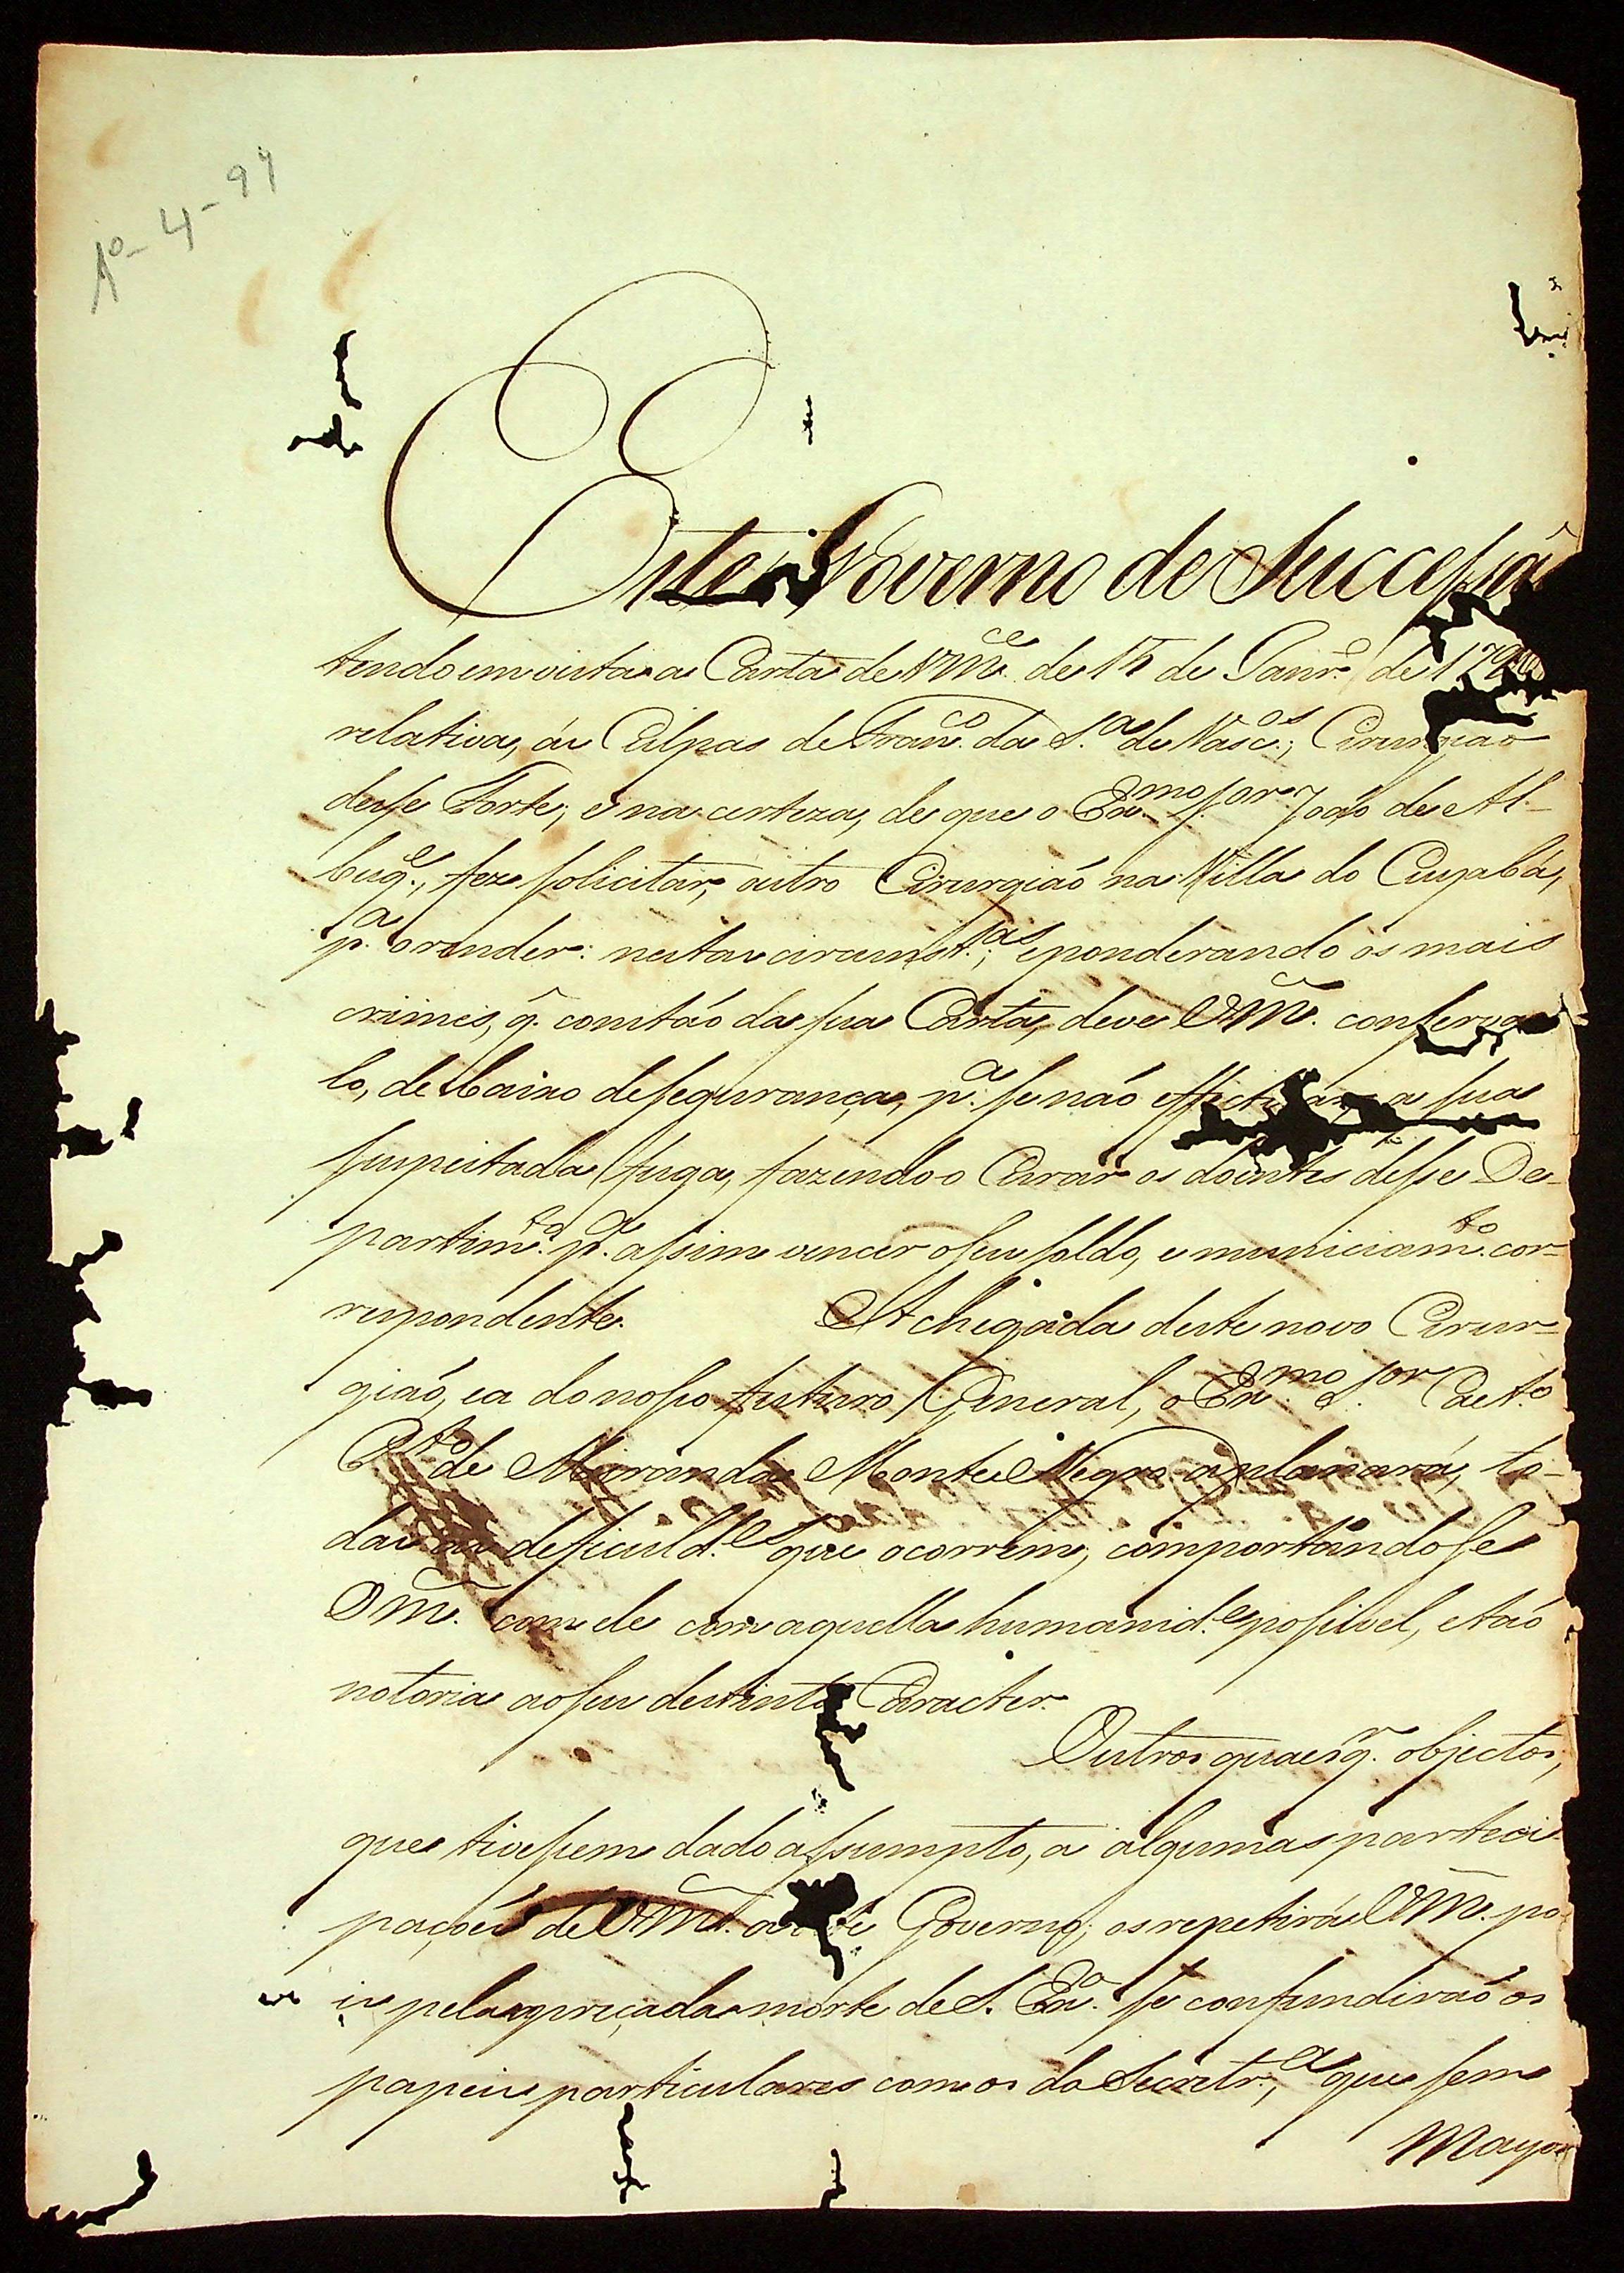 Aº-4-97
Este Governo de Successaõ
tendo em vista a Carta de VMce. de 15 de Janrº. de 179
relativa, ás Culpas de Franco. da Sª. de Vascos., Cirurgiaõ
desse Forte; e na certeza, de que o Exmo. Sor. Joaõ de Al-
buqe., fez solicitar, outro Cirurgiaõ na Villa do Cuyabá,
pª. o render: nestas circunstas., e ponderando os mais
crimes, q. constaõ da sua Carta, deve VM. conserva
lo, de baixo de segurança, pª. se naõ effectuar a sua
suspeitada fuga, fazendo-o Curar os doentes desse De-
partimto. pª. assim vencer o seu soldo, e municiamto. cor-
respondente. A chegada deste novo Cirur-
giaõ, e a do nosso futuro General, o Exmo. Sor. Caetº.
Pto. de Miranda Monte Negro aplanará, to-
das as deficulde. que ocorrem; comportandose
VM. com ele com aquella humanide. possivel, e taõ
notoria ao seu destinto Caracter.
Outros quaesq. objectos,
que tivessem dado assumpto, a algumas parteci-
paçoẽs de VM. a este Governo, os repetirá VM. po-
is pela apreçada morte de S. Exª. se confundiraõ os
papeis particulares com os da Secretrª., que sem
Mayor